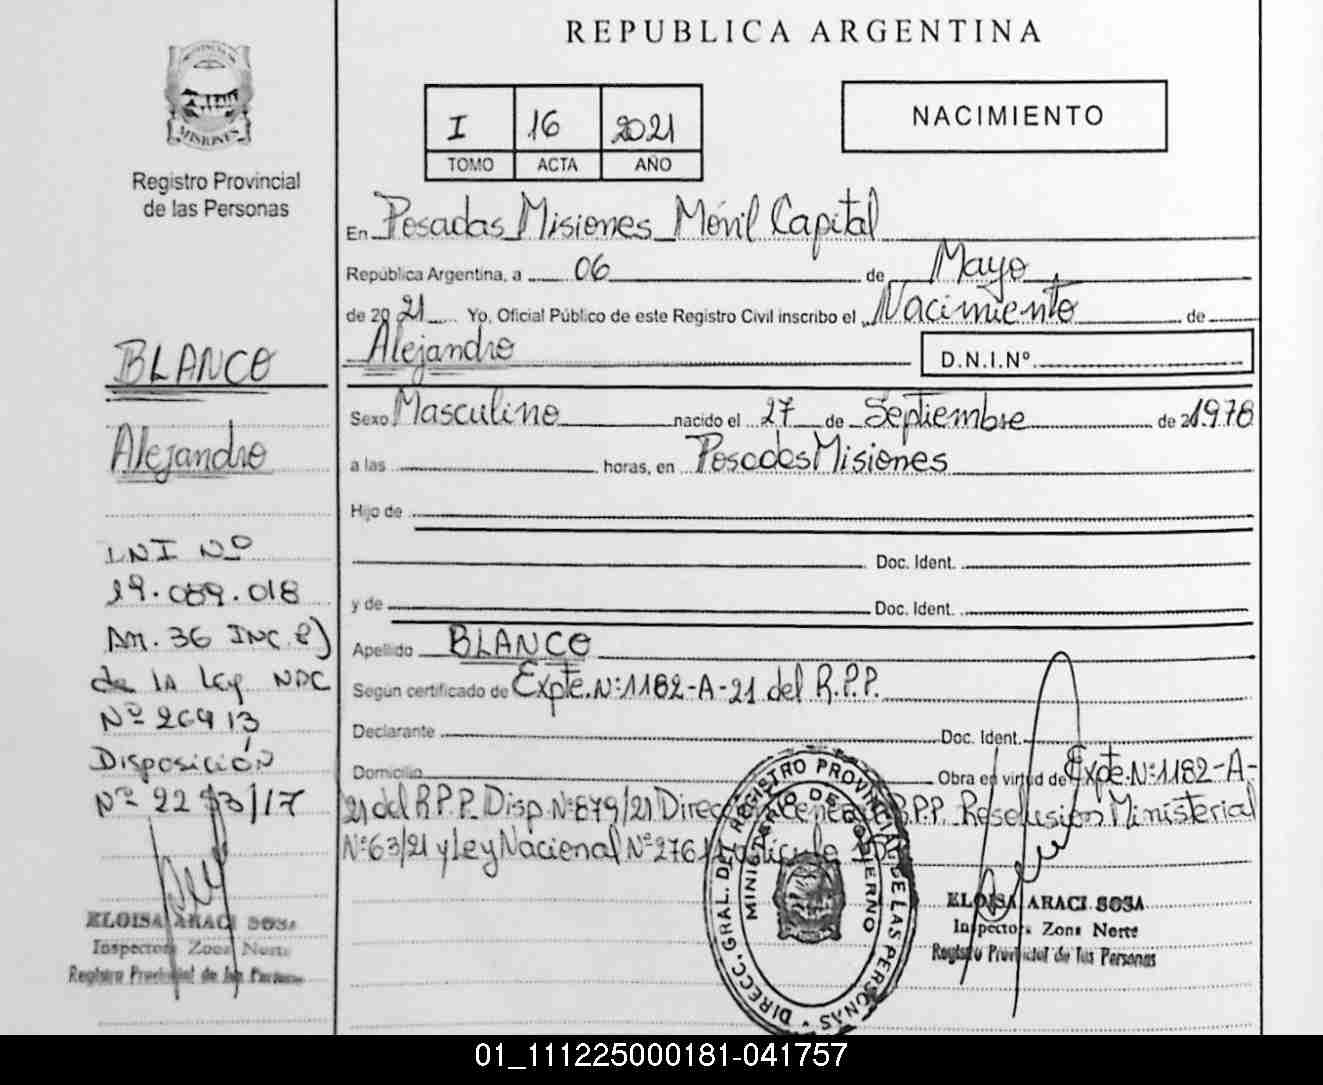 REPUBLICA ARGENTINA
PROVINCIA DE
MISIONES
Registro Provincial
de las Personas
I 16 2021
TOMO ACTA AÑO
NACIMIENTO
En Posadas Misiones Móvil Capital
República Argentina, a 06 de Mayo
de 2021 Yo, Oficial Público de este Registro Civil inscribo el Nacimiento de
Alejandro D.N.I.Nº
Sexo Masculino nacido el 27 de Septiembre de 1978
a las horas, en Posadas Misiones
Hijo de
Doc. Ident.
y de Doc. Ident.
Apellido BLANCO
Según certificado de Expte.Nº:1182-A-21 del R.P.P.
Declarante Doc. Ident.
Domicilio Obra en virtud de Expte.Nº:1182-A-
21 del R.P.P. Disp.Nº:879/21 R.P.P. Resolusion Ministerial
Nº:63/21 y Ley Nacional Nº
BLANCO
Alejandro
DNI Nº
19.089.018
Art. 36 INC
de la Ley NDC
Nº 26413
Disposición
Nº
ELOISA ARACI SOSA
Inspectora Zona Norte
Registro Provincial de las Personas
DIRECC. GRAL. DEL REGISTRO PROVINCIAL DE LAS PERSONAS
MINISTERIO DE GOBIERNO
ELOISA ARACI SOSA
Inspectora Zona Norte
Registro Provincial de las Personas
01_111225000181-041757